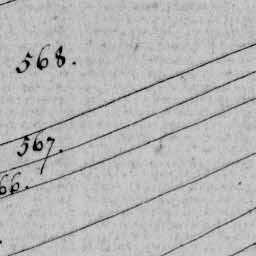 568.
567.
66.